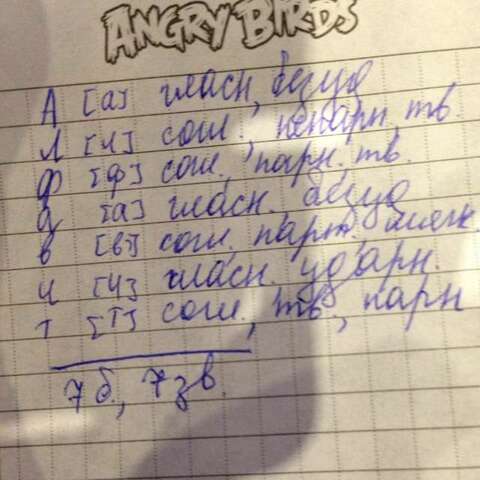 ANGRY BIRDS
А [а] гласн, безуд
Л [л] согл., непарн. тв.
ф [ф] согл., парн. тв.
а [а] гласн. безуд
в [в] согл. парн, мягк.
и [и] гласн. ударн.
т [т] согл., тв, парн
7 б., 7 зв.